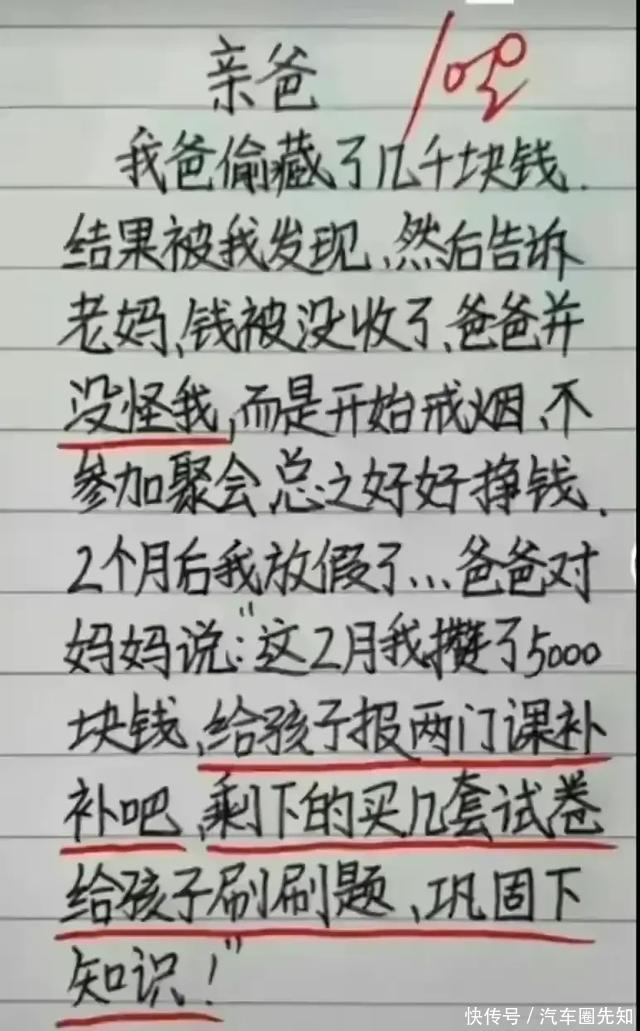 亲爸
100
我爸偷藏了几千块钱.
结果被我发现、然后告诉
老妈、钱被没收了、爸爸并
没怪我,而是开始戒烟、不
参加聚会总之好好挣钱.
2个月后我放假了...爸爸对
妈妈说:"这2月我攒了5000
块钱、给孩子报两门课补
补吧、剩下的买几套试卷
给孩子刷刷题、巩固下
知识!"
快传号/汽车圈先知